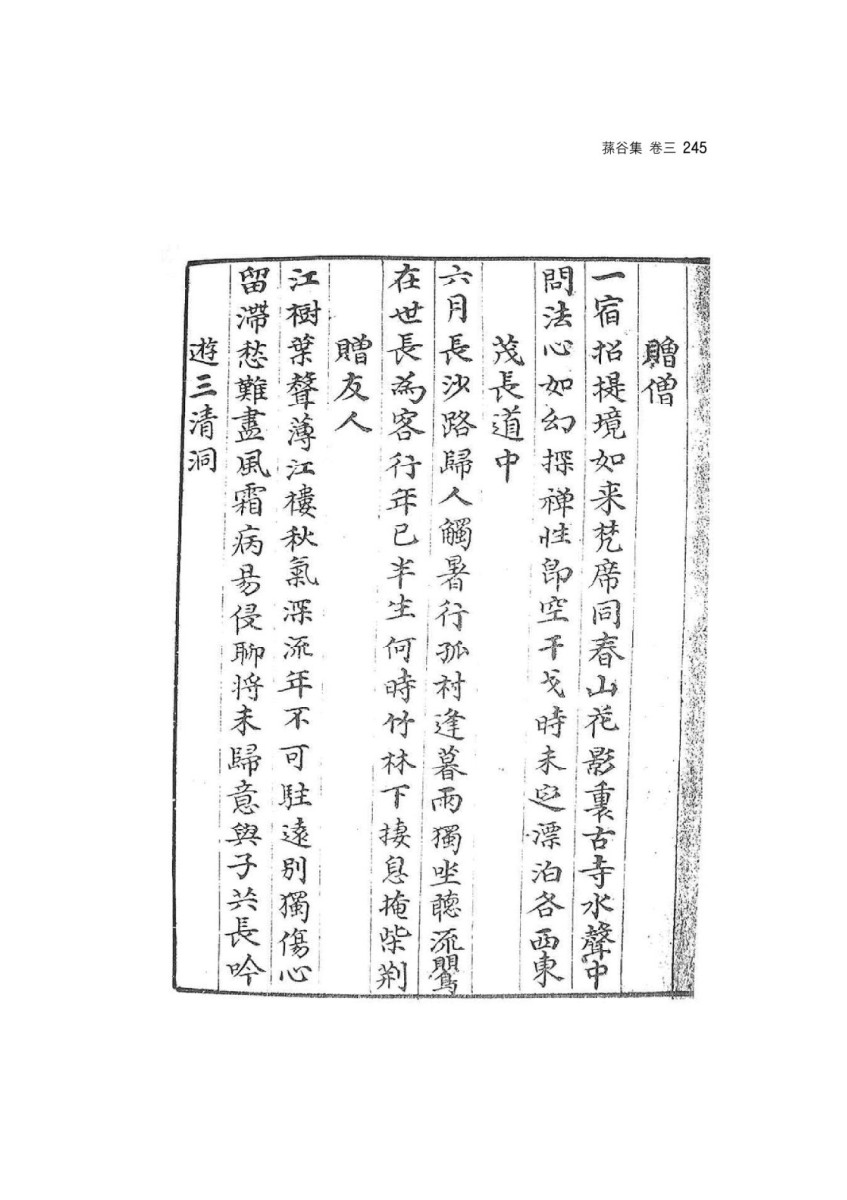 蓀谷集 卷三 245
贈僧
一宿招提境如来梵席同春山花影裏古寺水聲中
問法心如幻探禅性即空干戈時未定漂泊各西東
茂長道中
六月長沙路歸人觸暑行孤村逢暮雨獨坐聽流鸎
在世長爲客行年已半生何時竹林下捿息掩柴荆
贈友人
江樹葉聲薄江樓秋氣深流年不可駐遠別獨傷心
留滯愁難盡風霜病易侵聊将未歸意與子共長吟
遊三清洞